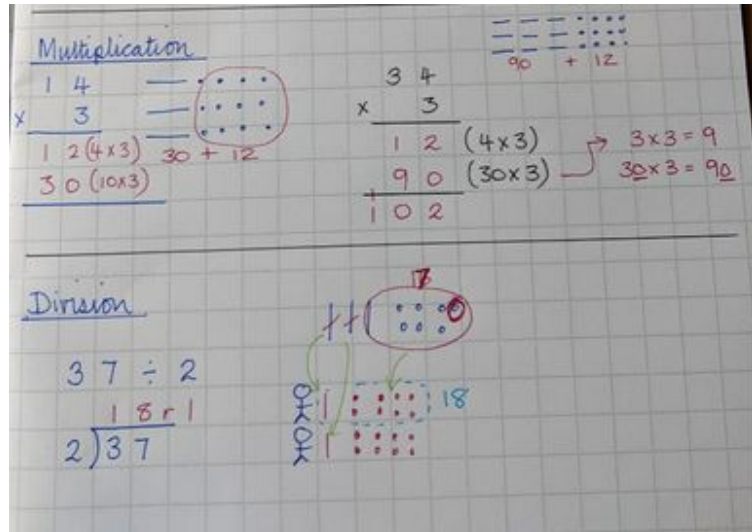 Multiplication
1 4
x 3
1 2 (4x3)
3 0 (10x3)
30 + 12
3 4
x 3
1 2 (4x3)
9 0 (30x3)
1 0 2
90 + 12
3x3 = 9
30x3 = 90
Division
3 7 ÷ 2
1 8 r 1
2)3 7
18